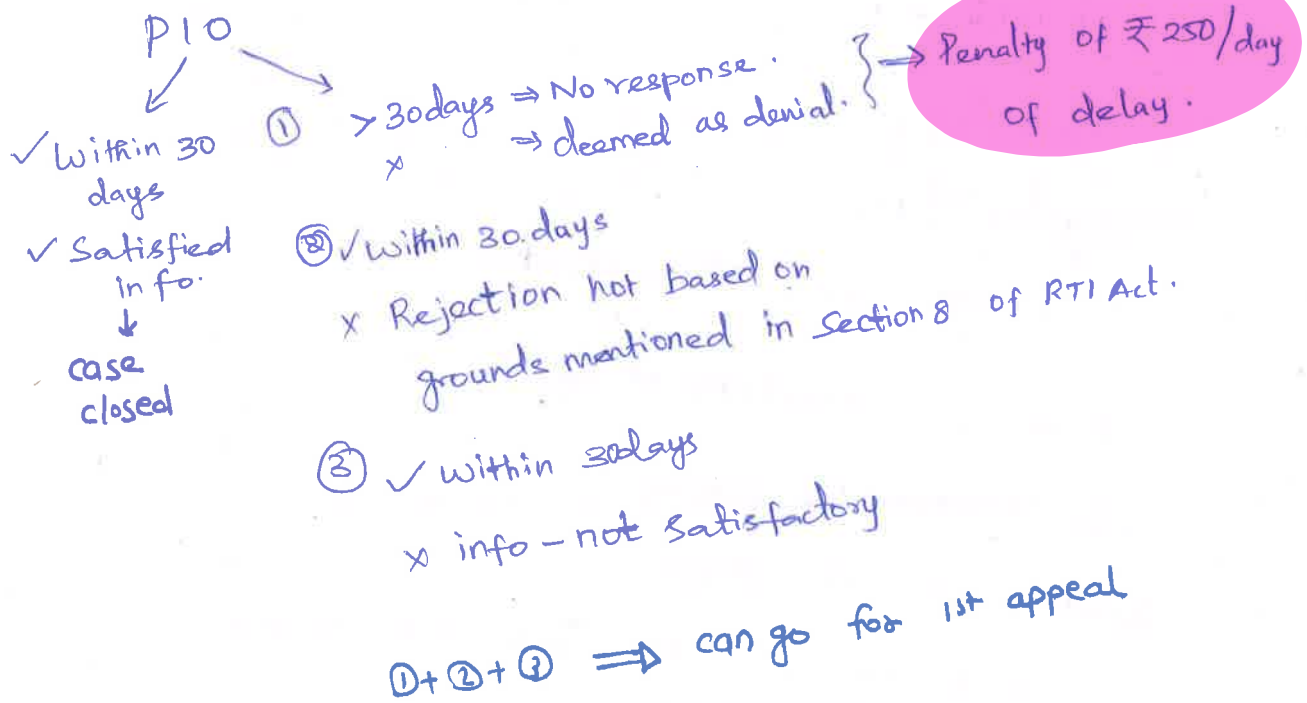 PIO
✓ Within 30
days
✓ Satisfied
info.
↓
case
closed
① > 30days ⇒ No response.
x ⇒ deemed as denial. } → Penalty of ₹250/day
of delay.
② ✓ within 30.days
x Rejection not based on
grounds mentioned in section 8 of RTI Act.
③ ✓ within 30days
x info - not satisfactory
①+②+③ ⇒ can go for 1st appeal